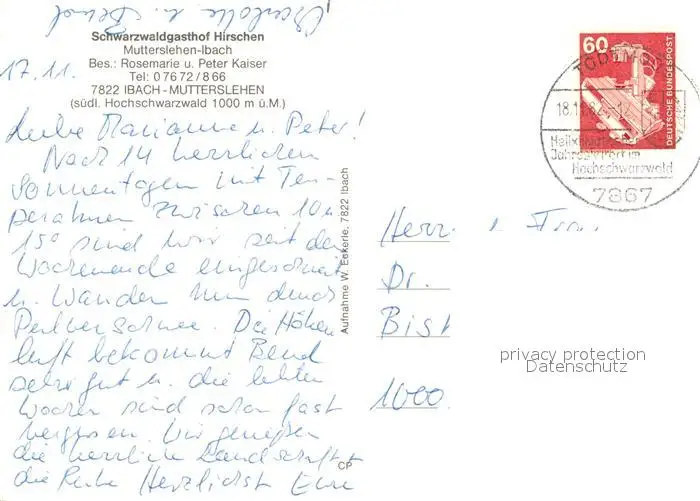 Charlotte u. Bernd
Schwarzwaldgasthof Hirschen
Mutterslehen-Ibach
Bes.: Rosemarie u. Peter Kaiser
Tel: 0 76 72 / 8 66
7822 IBACH - MUTTERSLEHEN
(südl. Hochschwarzwald 1000 m ü.M.)
17.11.
Liebe Marianne u. Peter!
Nach 14 herrlichen
Sonnentagen mit Tem-
peraturen zwischen 10 u.
15° sind wir seit dem
Wochenende eingeschneit
u. wandern nun durch
Pulverschnee. Die Höhen
luft bekommt Bernd
sehr gut u. die letzten
Wochen sind schon fast
vergessen. Wir genießen
die herrliche Landschaft u.
die Ruhe Herzlichst Eure
Aufnahme W. Eckerle, 7822 Ibach
CP
60
DEUTSCHE BUNDESPOST
18.11.82
Heilklimatischer
Jahreskurort im
Hochschwarzwald
7867
Herrn
Dr.
Bis
1000
privacy protection
Datenschutz